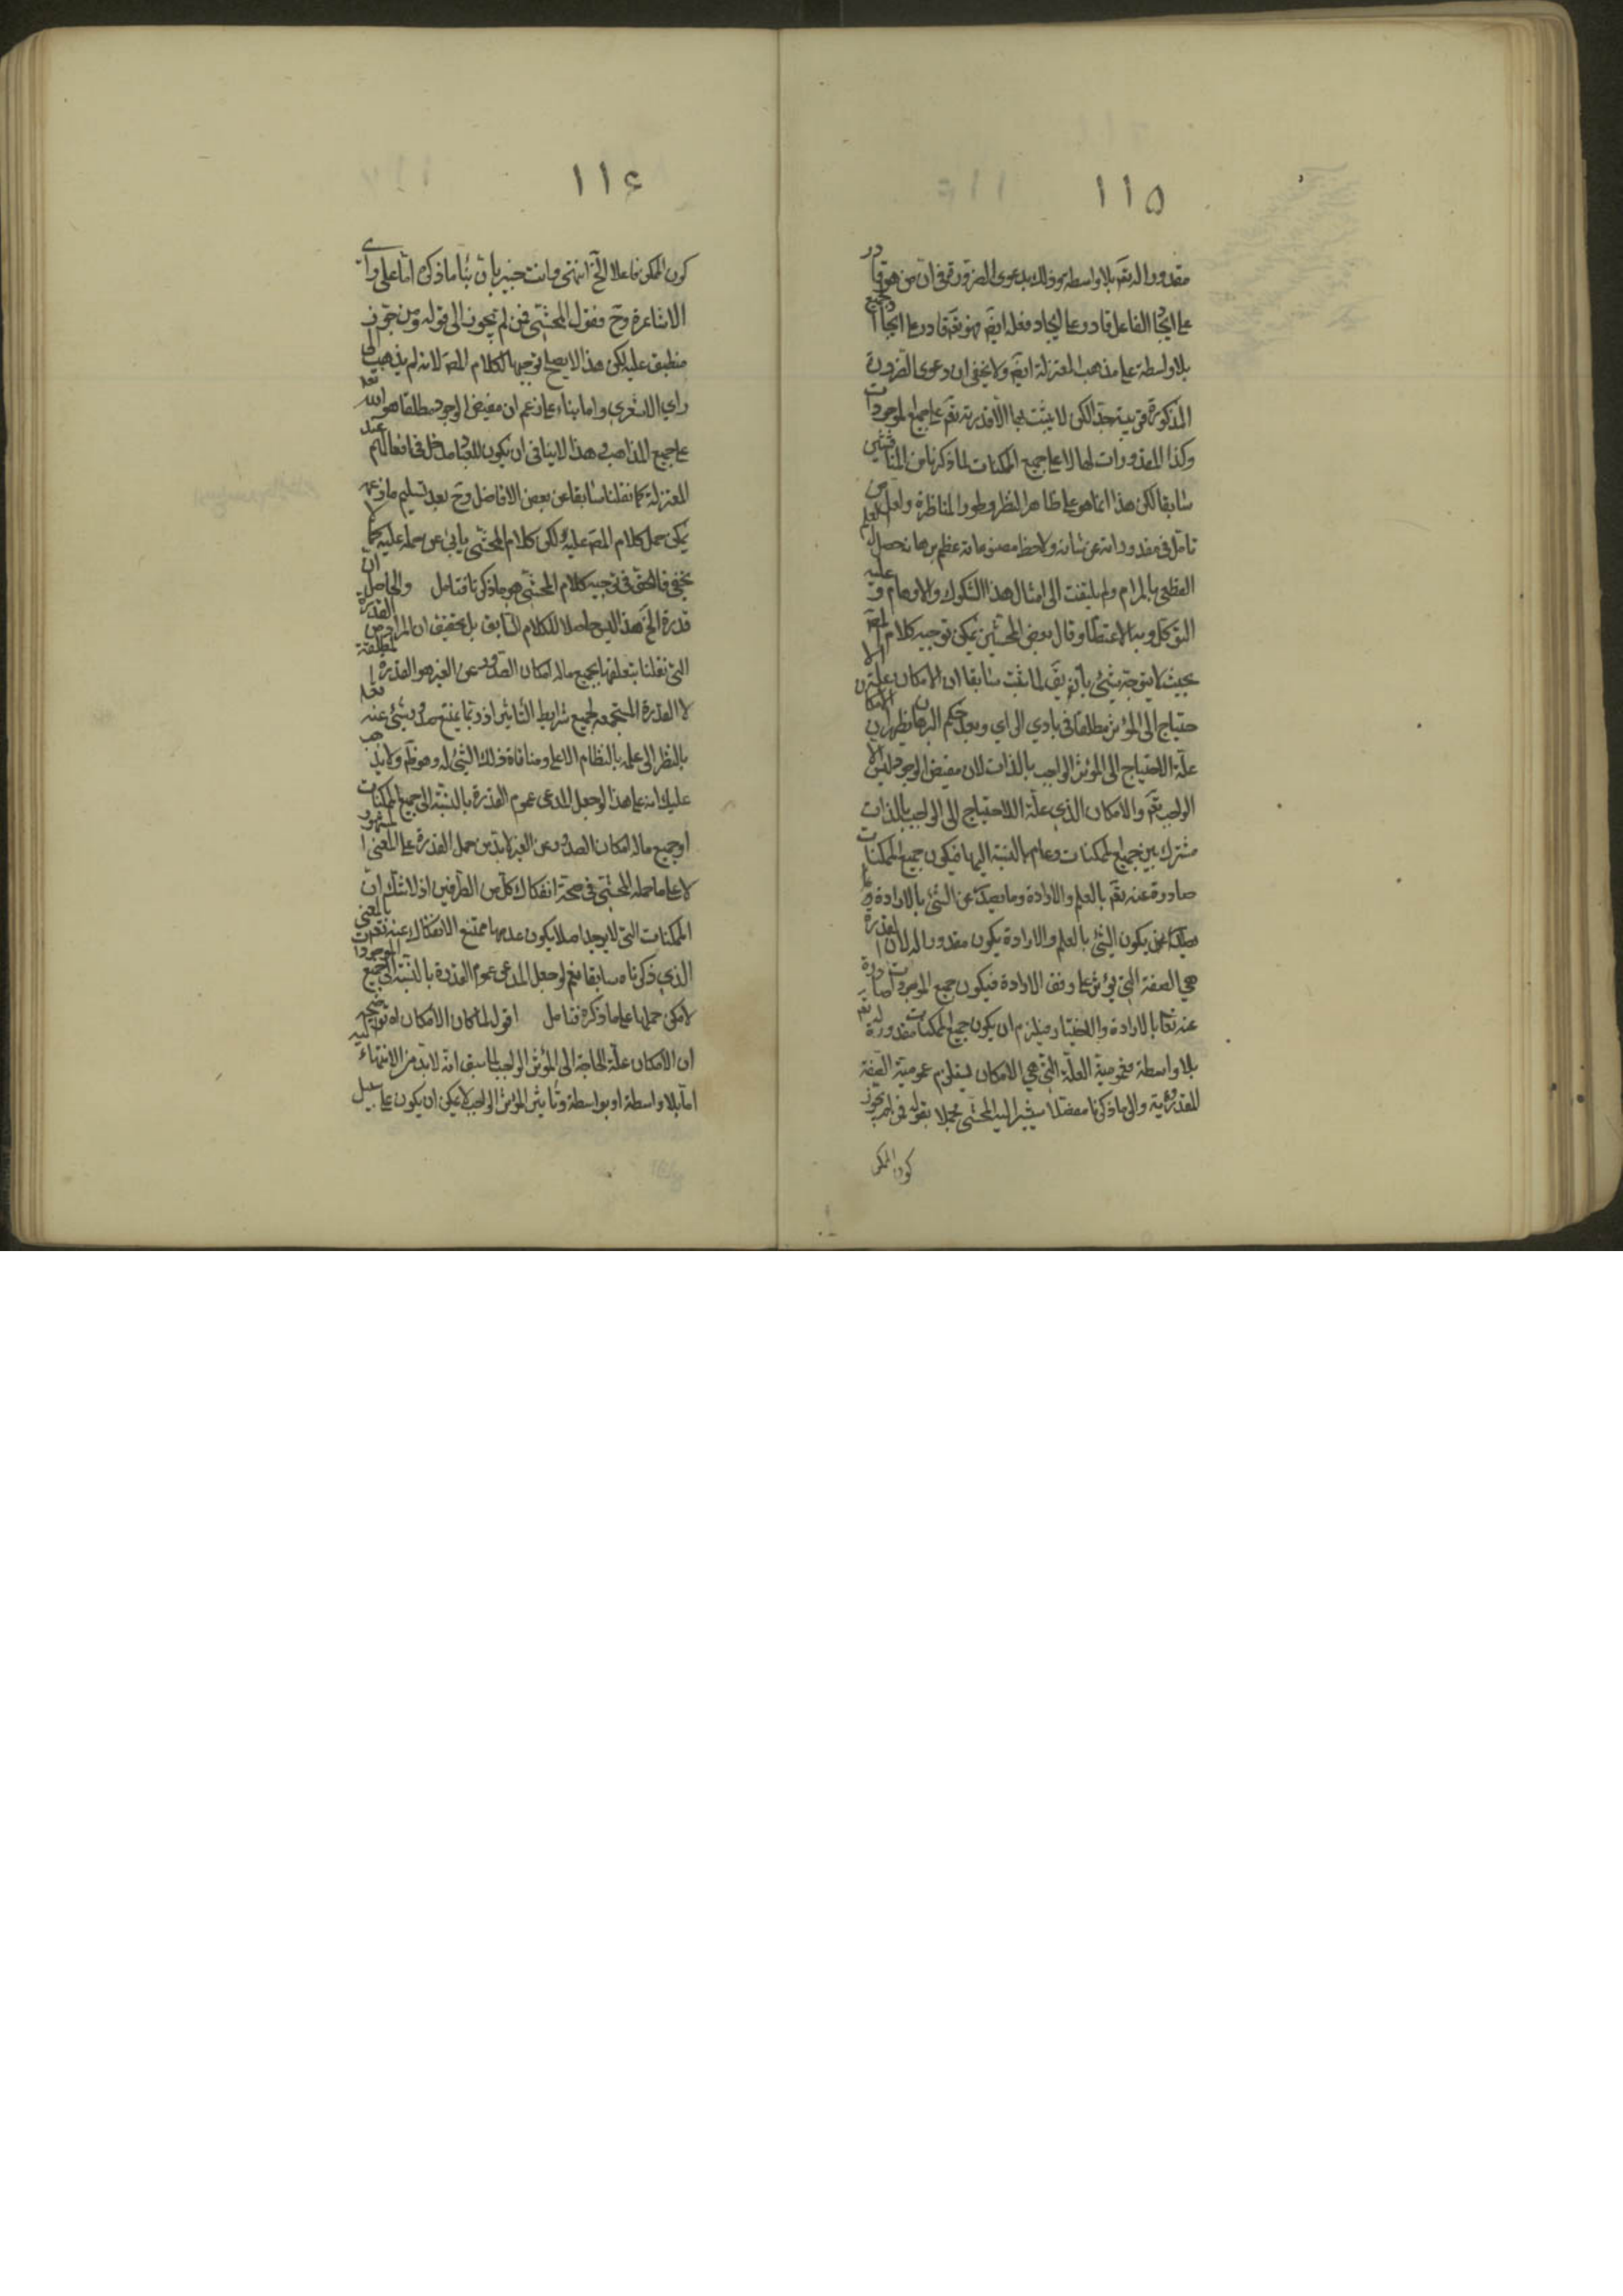 ١١٥
مقدورا له تعم بلا واسطة وذلك بدعوى الضرورة في ان من هو قادر
على ايجاد الفاعل قادر على ايجاد فعله ايضم فهو تعم قادر على ايجاد جميع
بلا واسطة على مذهب المعتزلة ايضم ولا يخفى ان دعوى الضرورة
المذكورة قريبة جدا لكن لا يثبت بها الا قدرته تعم على جميع الموجودات
وكذا المقدورات لها لا على جميع الممكنات لما ذكرنا من المناقشتين
سابقا لكن هذا انما هو على ظاهر النظر وطور المناظرة ولعل من
تامل في مقدوراته عن شانه ولاحظ مصنوعاته عظم برهانه حصل له العلم
القطعي بالمرام ولم يلتفت الى امثال هذا الشكوك والاوهام و عليه
التوكل وبه الاعتصام وقال بعض المحشين يمكن توجيه كلام المصم
بحيث لا يتوجه شئ بان يقم لما ثبت سابقا ان الامكان علة الا
حتياج الى المؤثر مطلقا في بادي الراي وبعد حكم البرهان يظهر ان الامكان
علة الاحتياج الى المؤثر الواجب بالذات لان مفيض الوجود ليس الا
الواجب تعم والامكان الذي علة الاحتياج الى الواجب بالذات
مشترك بين جميع الممكنات وعام بالنسبة اليها فيكون جميع الممكنات
صادرة عنه تعم بالعلم والارادة وما يصدر عن الشئ بالارادة و
يصدر عن يكون الشئ بالعلم والارادة يكون مقدورا له لان القدرة
هي الصفة التي يؤثر على وفق الارادة فيكون جميع الموجودات صادرة
عنه تعا بالارادة والاختيار فيلزم ان يكون جميع الممكنات مقدورة له تعم
بلا واسطة فعمومية العلة التي هي الامكان يستلزم عمومية الصفة
المقدورية والى ما ذكرنا مفصلا يشير اليه المحشي مجملا بقوله فمن لم يجوز
كون الممكن
١١٤
كون الممكن فاعلا الخ انتهى وانت خبير بان بناء ما ذكره اما على راي
الاشاعرة وح فقول المحشي فمن لم يجوز الى قوله ومن جوز
منطبق عليه لكن هذا لا يصلح توجيها لكلام المصم لانه لم يذهب الى
راي الاشعري واما بناء على زعم ان مفيض الوجود مطلقا هو الله تعم
على جميع المذاهب وهذا لا ينافي ان يكون للعباد مدخل في افعالهم عند
المعتزلة كما نقلنا سابقا عن بعض الافاضل وح بعد تسليم ما زعمه
يمكن حمل كلام المصم عليه ولكن كلام المحشي يابى عن حمله عليه كما لا
يخفى فالحق في توجيه كلام المحشي هو ما ذكرنا فتامل والحاصل ان
قدرة الخ هذا ليس حاصلا للكلام السابق بل تحقيق ان المراد من القدرة
التي نقلنا بتعلقها بجميع ماله امكان الصدور عن الغير هو القدرة المطلقة
لا القدرة المستجمعة لجميع شرايط التاثير اذ ربما يمتنع صدور شئ عنه تعم
بالنظر الى علمه بالنظام الاعلى ومنافاة ذلك الشئ له وهو ظم ولا يذهب
عليك انه على هذا لو جعل المدعى عموم القدرة بالنسبة الى جميع الممكنات
او جميع ماله امكان الصدور عن الغير لا بد من حمل القدرة على المعنى المشهور
لا على ما حمله المحشي في صحة انفكاك كل من الطرفين اذ لا شك ان
الممكنات التي لا يوجد اصلا يكون عدمها ممتنع الانفكاك عنه تعم بالمعنى
الذي ذكرناه سابقا نعم لو جعل المدعى عموم القدرة بالنسبة الى جميع الموجودات
لامكن حملها على ما ذكره فتامل اقول لما كان الامكان اه توضيحه
ان الامكان علة الحاجة الى المؤثر الواجب لما سبق انه لا بد من الانتهاء اليه
اما بلا واسطة او بواسطة وتاثير المؤثر الواجب لا يمكن ان يكون على سبيل